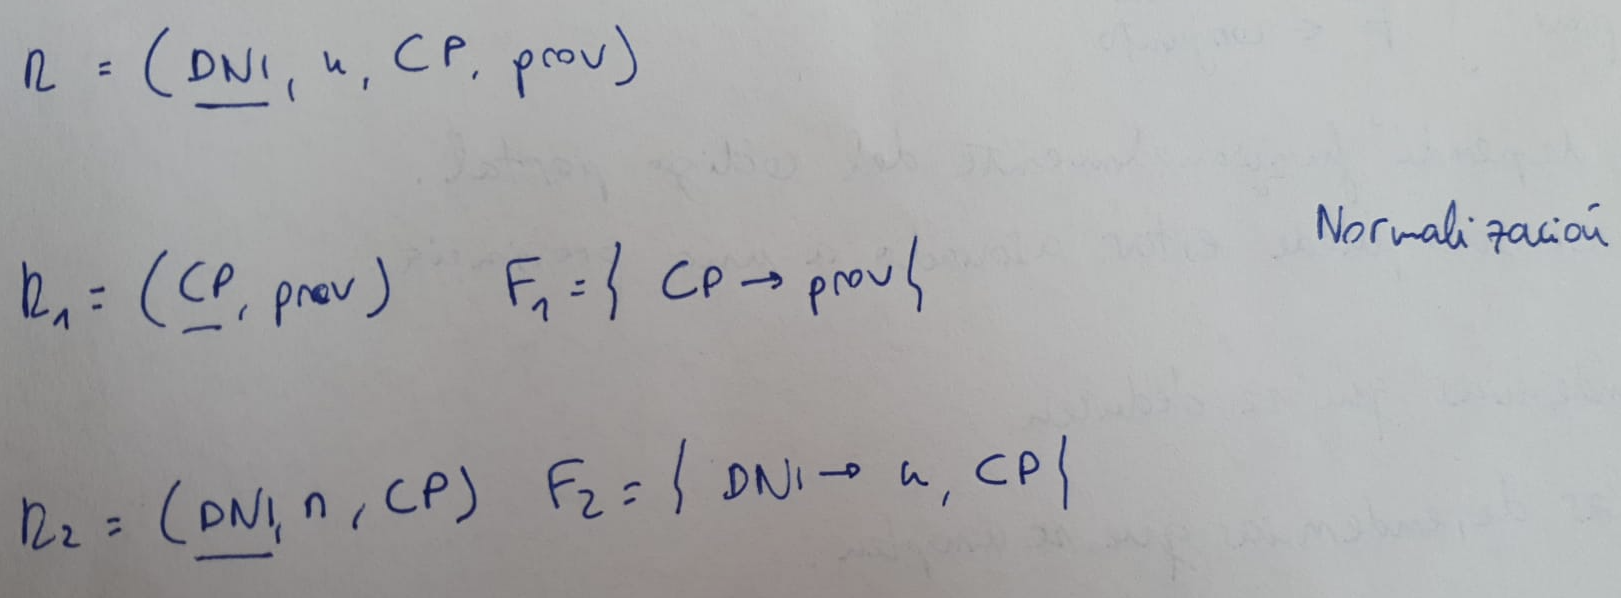 R = (DNI, n, CP, prov)
Normalización
R₁ = (CP, prov) F₁ = { CP → prov }
R₂ = (DNI, n, CP) F₂ = { DNI → n, CP }